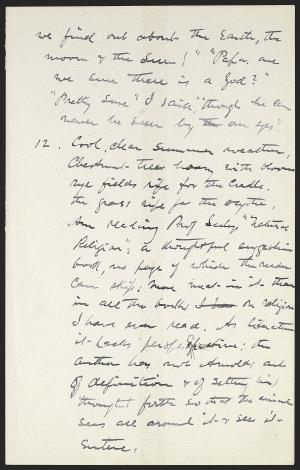 we find out about the Earth, the
moon & the Sun!" "Papa, are
we sure there is a God?"
"Pretty sure" I said "though he can
never be seen by our eyes"
12. Cool, clear summer weather,
Chestnut-trees hoary with bloom
rye fields ripe for the Cradle.
the grass ripe for the scythe.
Am reading Prof Seeley "Natural
Religion"; a thoughtful suggestive
book, no page of which the reader
can skip; more meat in it than
in all the books I on religion
I have ever read. As literature
it lacks perspective; the
author has not Arnolds art
of definition & of setting his
thought forth so that the mind
sees all around it & sees it
entire.